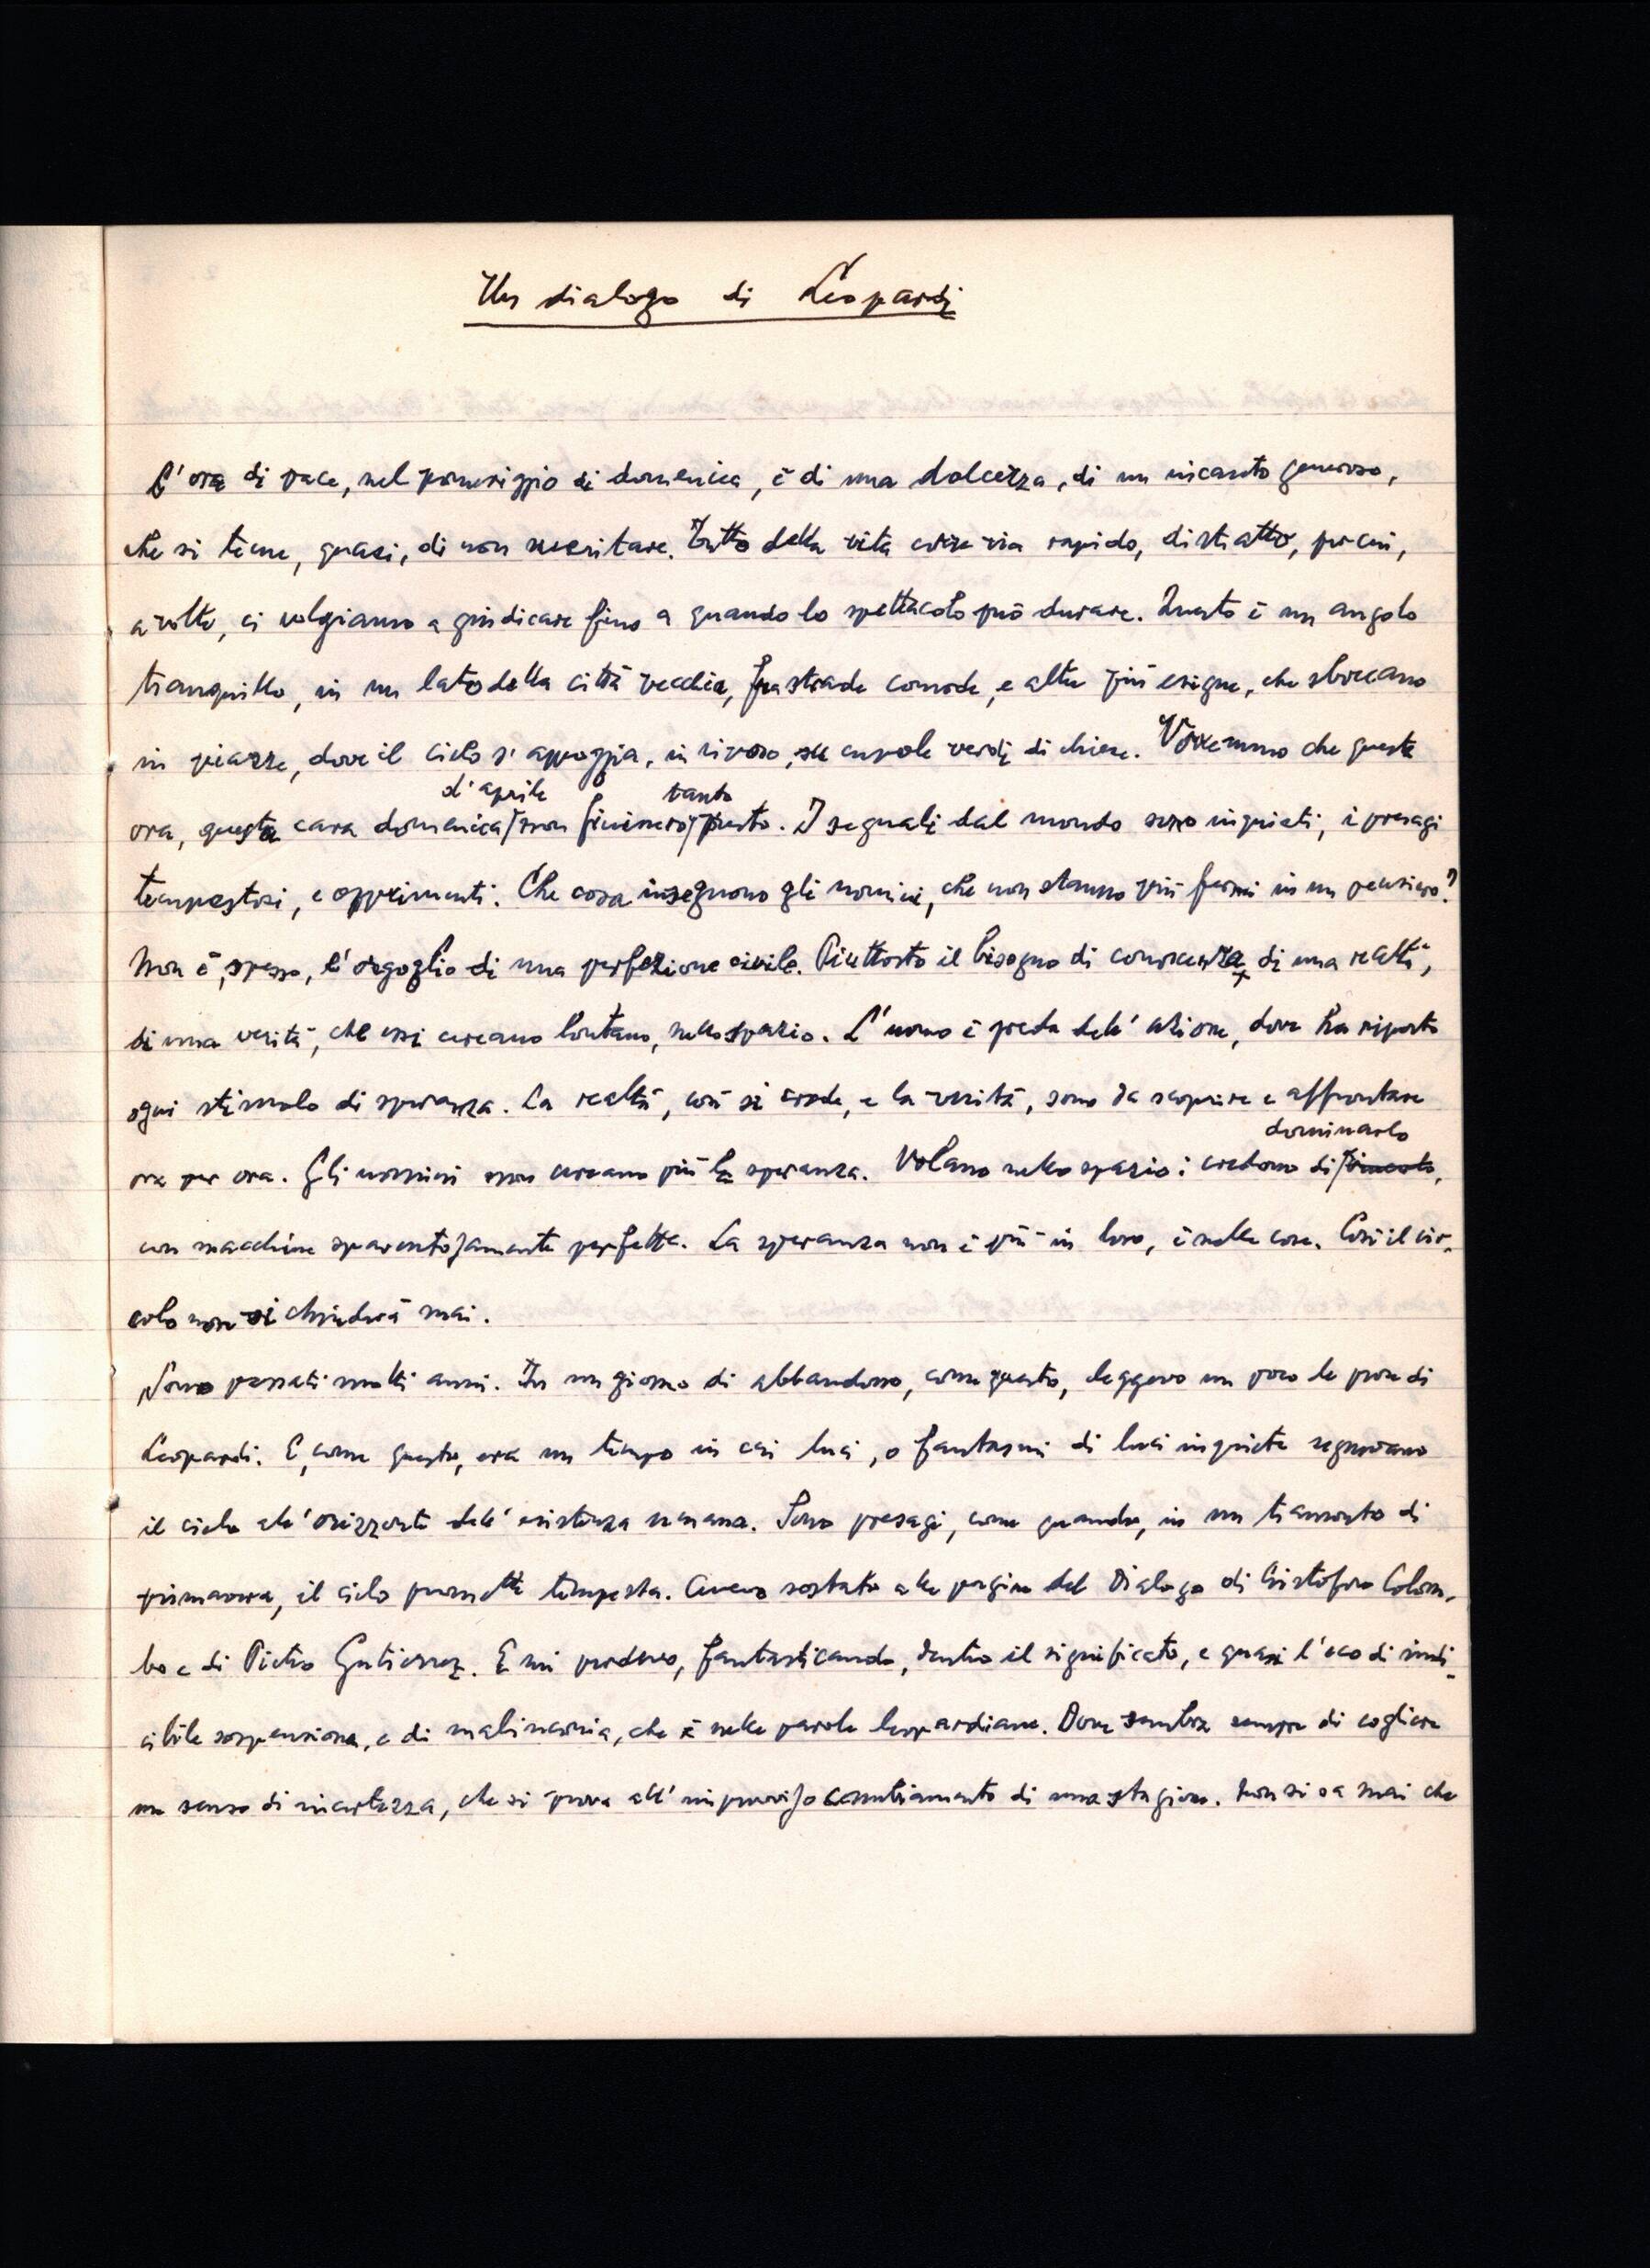 Un dialogo di Leopardi
L'ora di pace, nel pomeriggio di domenica, è di una dolcezza, di un incanto generoso,
che si teme, quasi, di non meritare. Tutto della vita corre via rapido, distratto, per cui,
a volte, ci volgiamo a giudicare fino a quando lo spettacolo può durare. Questo è un angolo
tranquillo, in un lato della città vecchia, fra strade comode, e altre più esigue, che sboccano
in piazze, dove il cielo s'appoggia, in riposo, su cupole verdi di chiese. Vorremmo che questa
d'aprile tanto
ora, questa cara domenica non finissero presto. I segnali dal mondo sono inquieti, i presagi
tempestosi, e opprimenti. Che cosa inseguono gli uomini, che non stanno più fermi in un pensiero?
Non è, spesso, l'orgoglio di una perfezione civile. Piuttosto il bisogno di conoscenza, di una realtà,
di una verità, che essi cercano lontano, nello spazio. L'uomo è preda dell'azione, dove ha riposto
ogni stimolo di speranza. La realtà, così si crede, e la verità, sono da scoprire e affrontare
dominarlo
ora per ora. Gli uomini non cercano più la speranza. Volano nello spazio: credono di vincerlo,
con macchine spaventosamente perfette. La speranza non è più in loro, è nelle cose. Così il cir-
colo non si chiuderà mai.
Sono passati molti anni. In un giorno di abbandono, come questo, leggevo un poco le prose di
Leopardi. E, come questo, era un tempo in cui luci, o fantasmi di luci inquiete segnavano
il cielo all'orizzonte dell'esistenza umana. Sono presagi, come quando, in un tramonto di
primavera, il cielo promette tempesta. Avevo sostato alle pagine del Dialogo di Cristoforo Colom-
bo e di Pietro Gutierrez. E mi perdevo, fantasticando, dentro il significato, e quasi l'eco di indi-
cibile sospensione, e di malinconia, che è nelle parole leopardiane. Dove sembra sempre di cogliere
un senso di incertezza, che si prova all'improvviso cambiamento di una stagione. Non si sa mai che